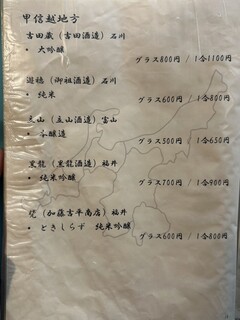 甲信越地方
吉田蔵（吉田酒造）石川
・ 大吟醸
グラス800円 / 1合1100円
遊穂（御祖酒造）石川
・ 純米
グラス600円 / 1合800円
立山（立山酒造）富山
・ 本醸造
グラス500円 / 1合650円
黒龍（黒龍酒造）福井
・ 純米吟醸
グラス700円 / 1合900円
梵（加藤吉平商店）福井
・ ときしらず 純米吟醸
グラス600円 / 1合800円